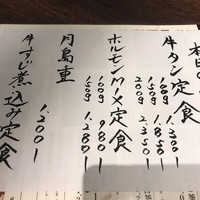 本日の
牛タン定食
100g 1.300
150g 1.850
200g 2.350
ホルモンMIX定食
100g 980
150g 1.280
月島重
牛すじ煮込み定食
1.200